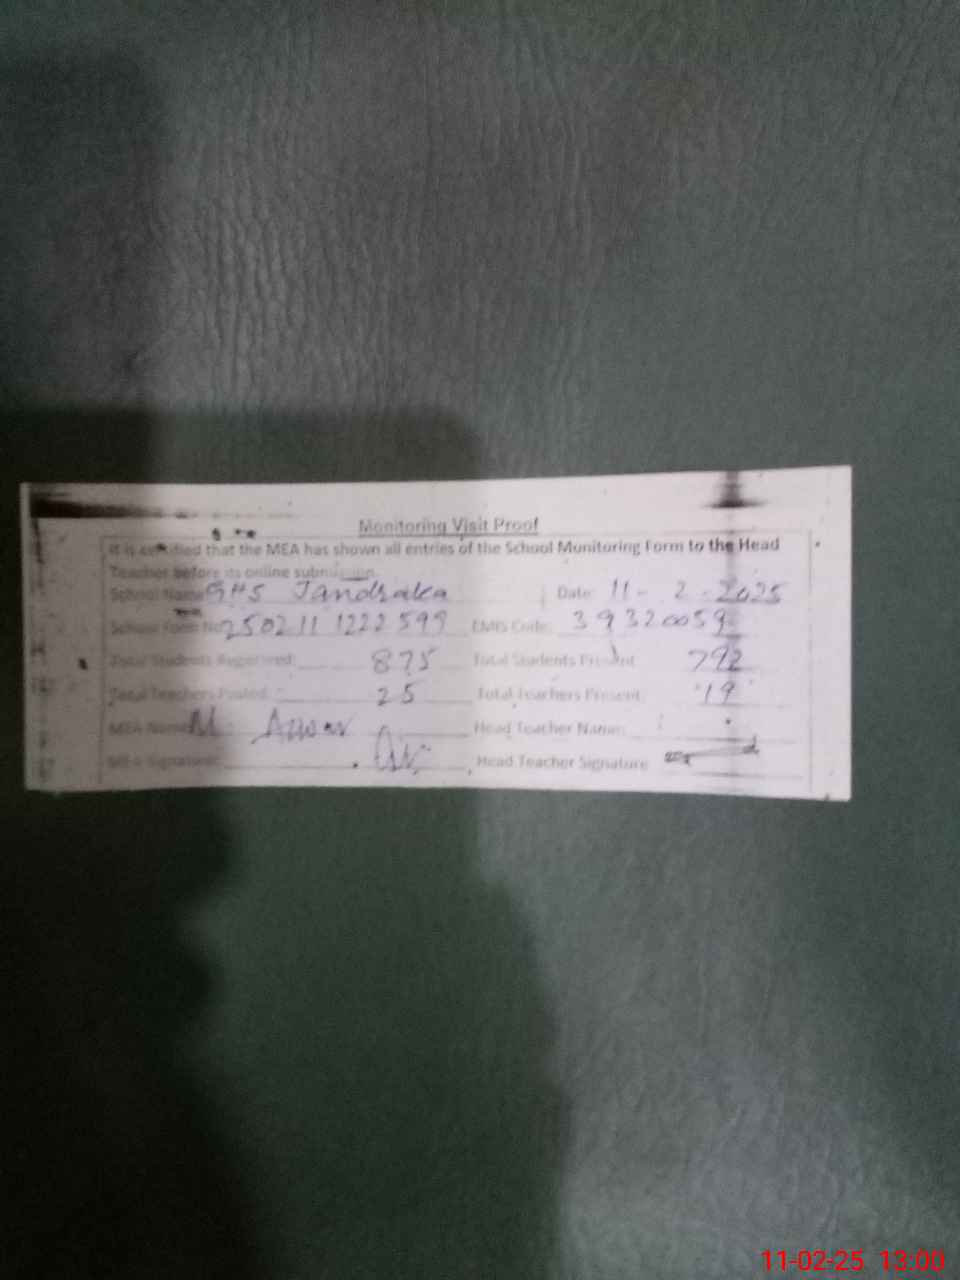 Monitoring Visit Proof
It is certified that the MEA has shown all entries of the School Monitoring Form to the Head
Teacher before its online submission.
School Name GHS Jandraka Date: 11-2-2025
School Form No 250211 1222599 EMIS Code: 39320059
Total Students Registered: 875 Total Students Present 792
Total Teachers Posted: 25 Total Teachers Present: 19
MEA Name M. Anwar Head Teacher Name:
MEA Signature: Head Teacher Signature
11-02-25 13:00